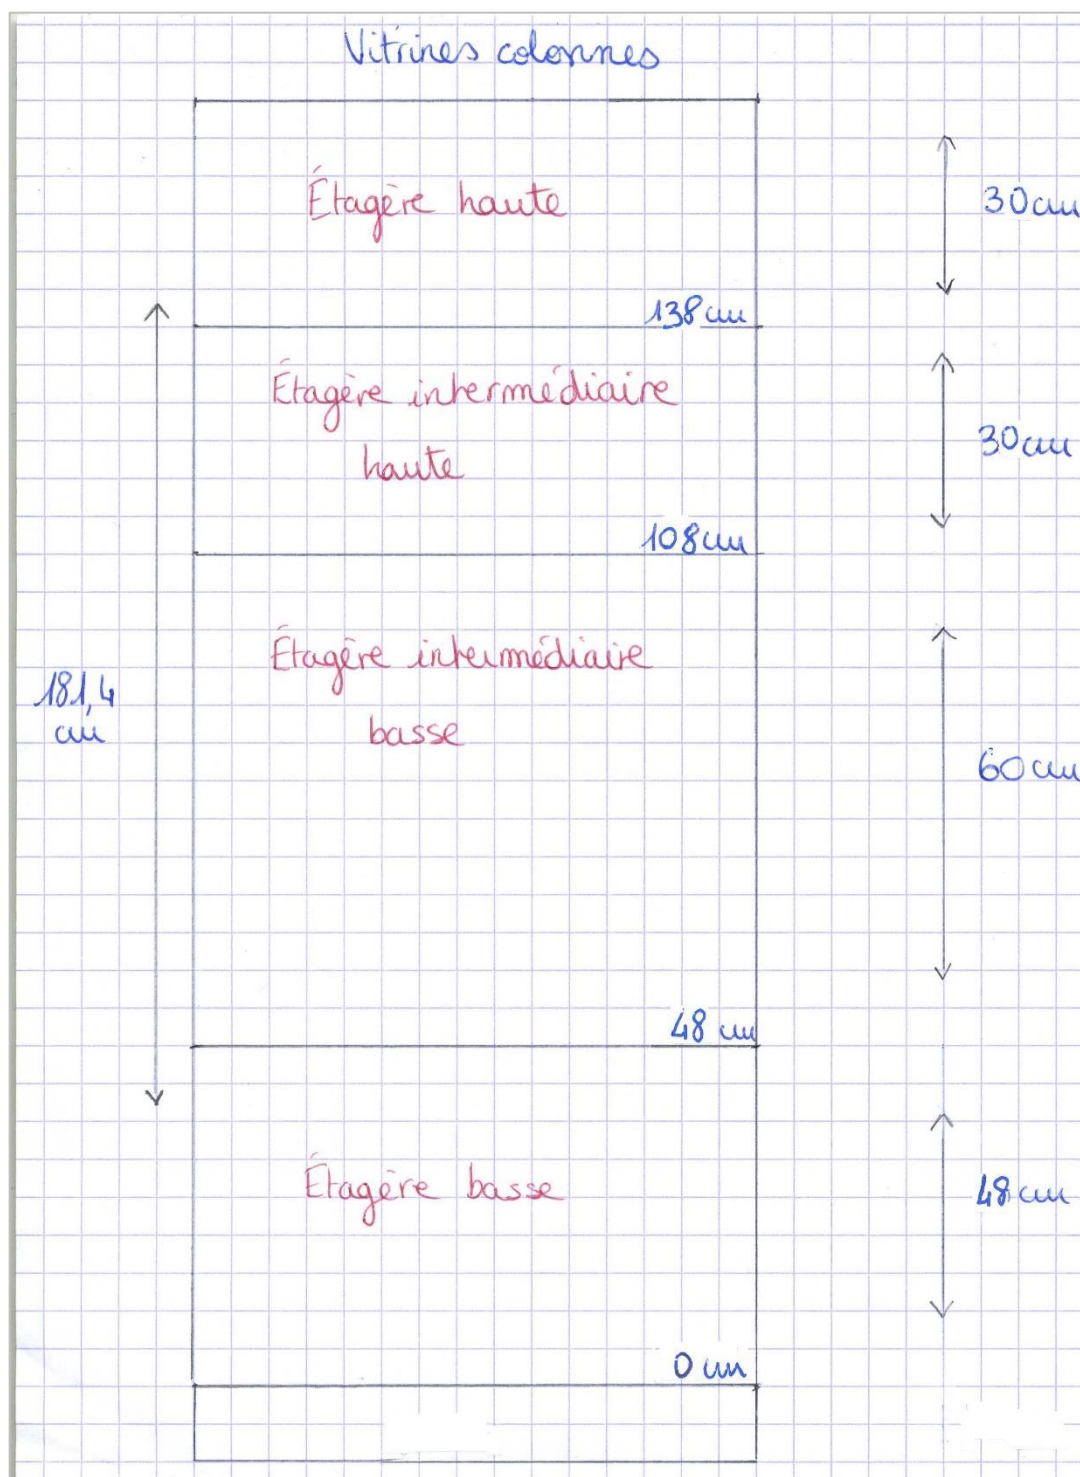 Vitrines colonnes
Étagère haute
30cm
138cm
Étagère intermédiaire
haute
30cm
108cm
Étagère intermédiaire
basse
181,4
cm
60cm
48 cm
Étagère basse
48cm
0 cm